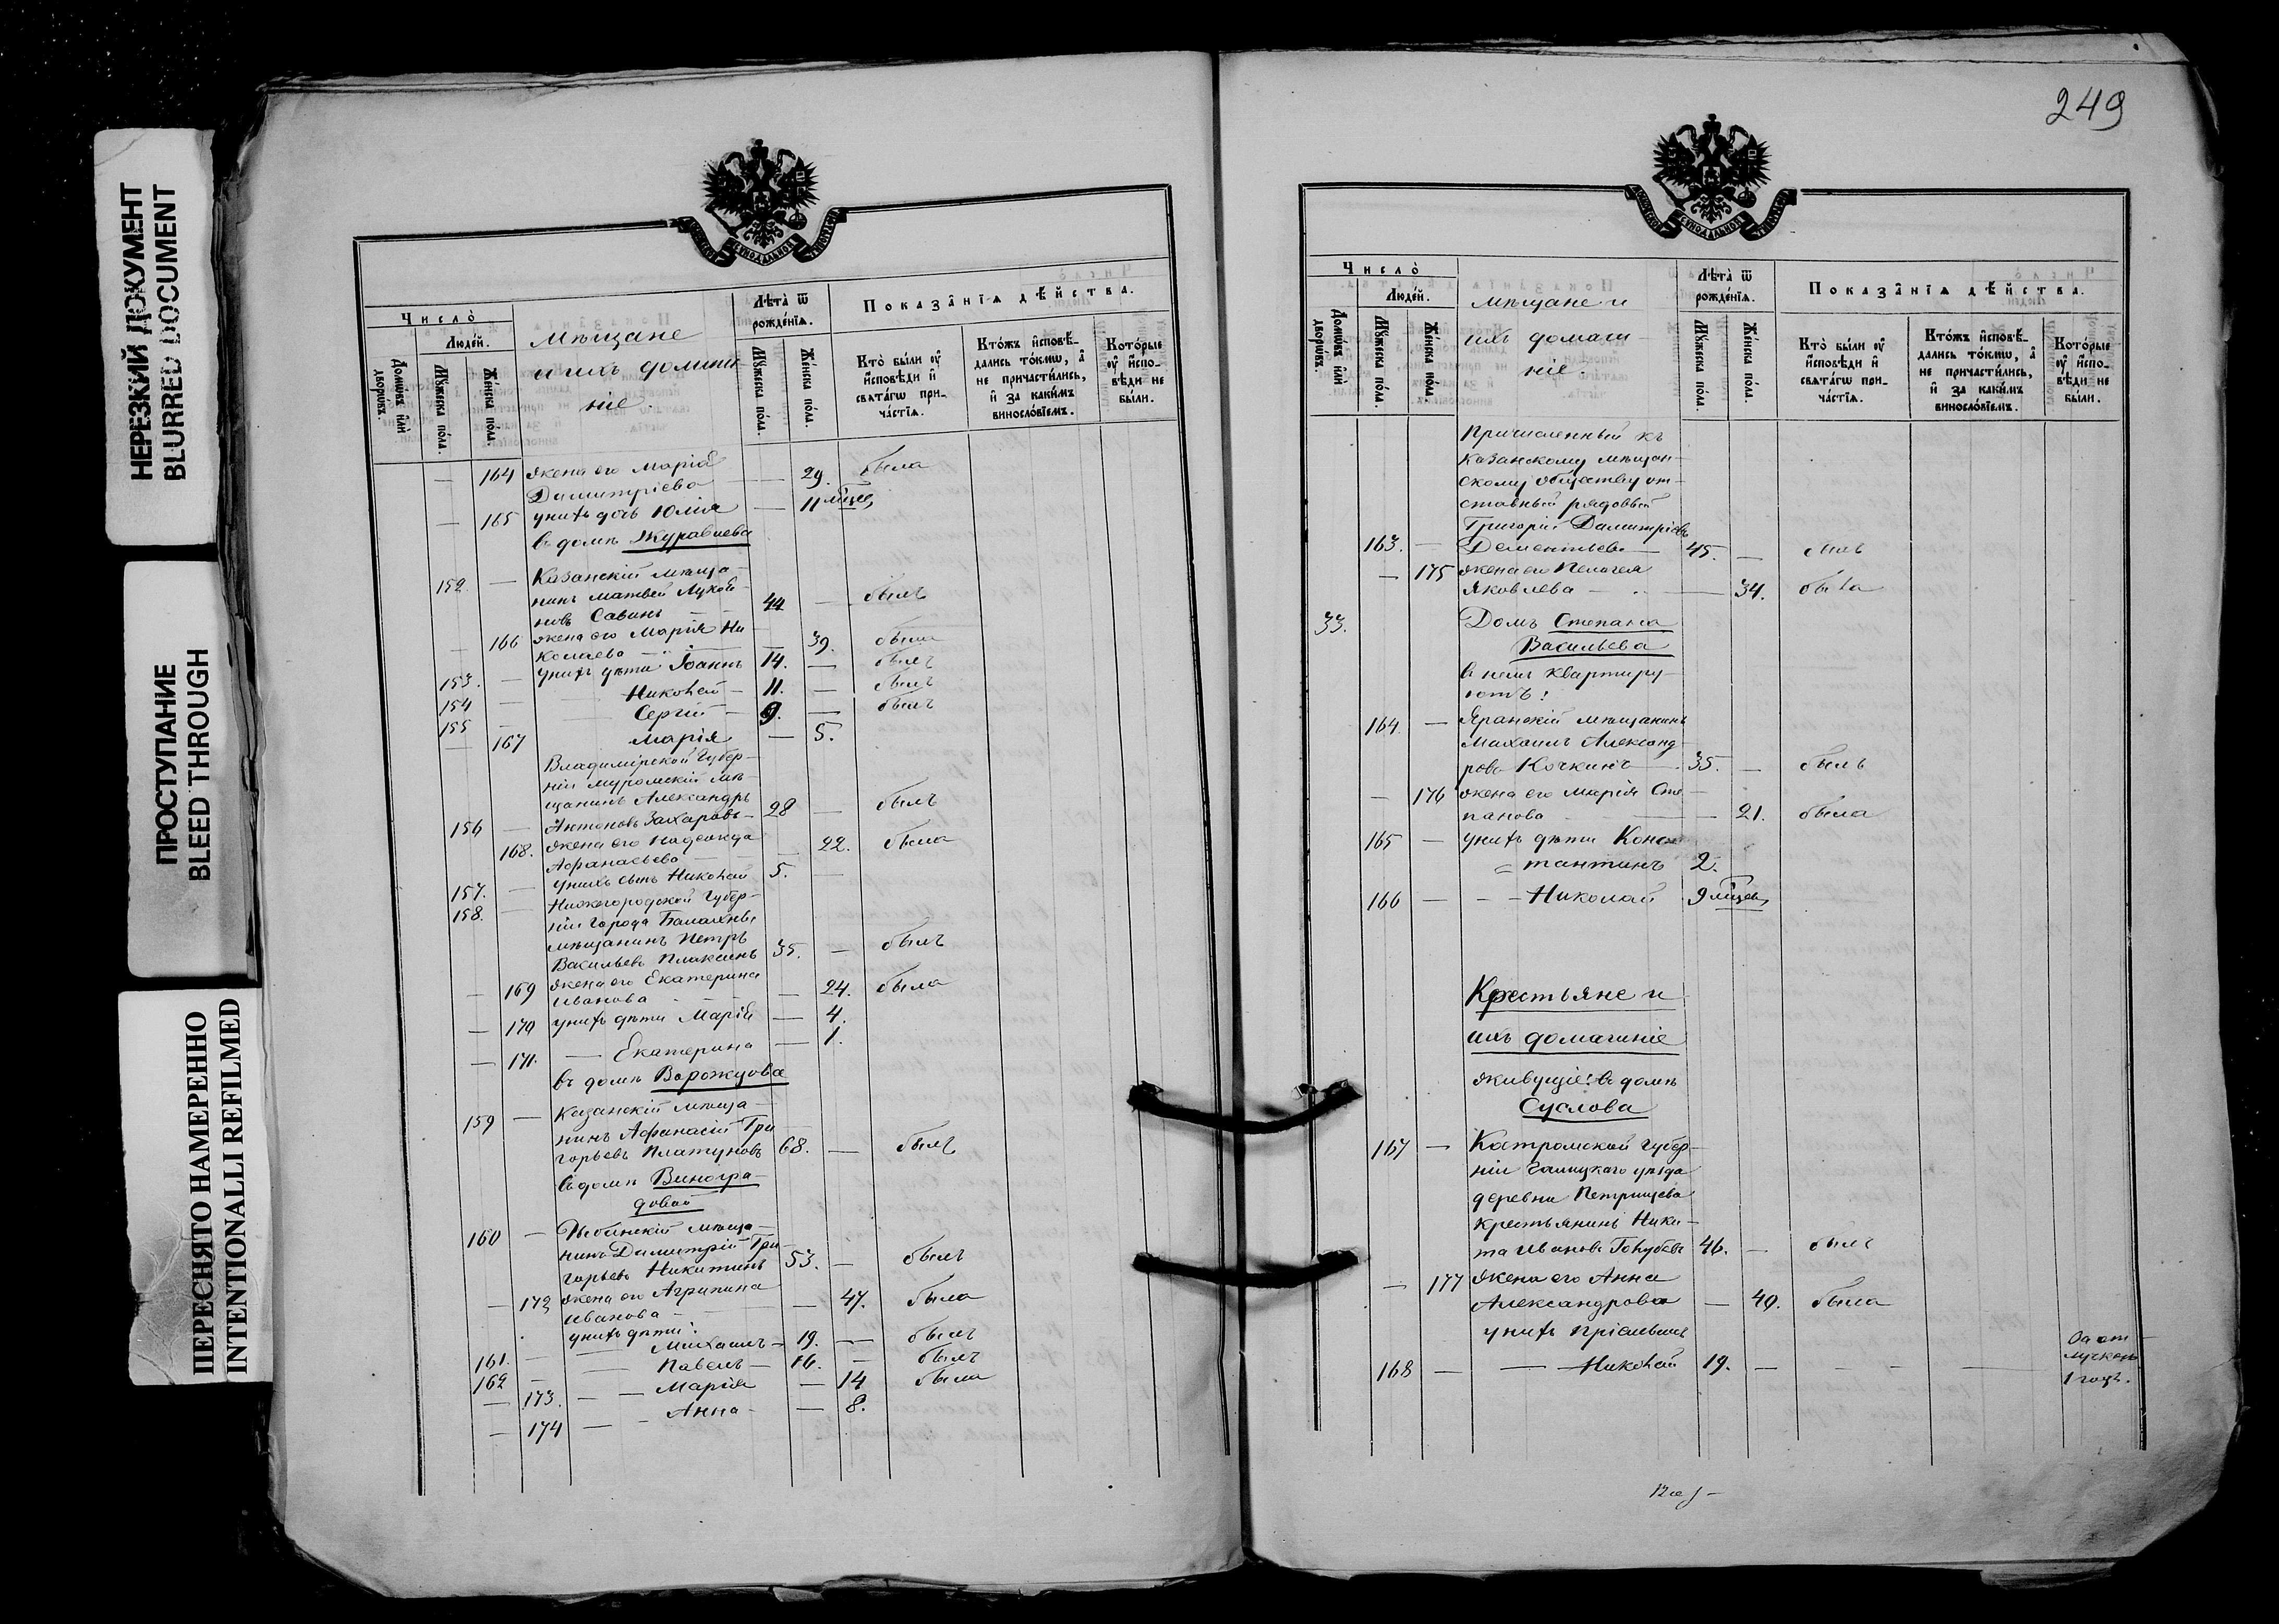 НЕРЕЗКИЙ ДОКУМЕНТ
BLURRED DOCUMENT
ПРОСТУПАНИЕ
BLEED THROUGH
ПЕРЕСНЯТО НАМЕРЕННО
INTENTIONALLI REFILMED
Число̀
Людей.
Домѡвъ или дворѡвъ.
Мꙋжеска пола.
Женска пола.
Мѣщане
и ихъ домаш
ніе.
Лѣта ѿ рожденїѧ.
Мꙋжеска пола.
Женска пола.
Показанїѧ дѣйства.
Кто̀ были оу҆ исповѣди и свѧтагѡ причастїѧ.
Ктожъ исповѣдались токмѡ, а не причастились, и за какимъ винословїемъ.
Которые оу҆ исповѣди не были.
— 164 жена его Марія
Димитріева — 29. была
— 165 у нихъ дочь Юлія — 11 мѣсяц.
въ домѣ Журавлева
152. — Казанскій мѣща-
нинъ Матвей Луков
новъ Савинъ 44 — былъ
— 166 жена его Марія Ни
колаева — 39. была
153. — у нихъ дѣти Іоаннъ 14. — былъ
154 — Николай — 11. — былъ
155 — Сергій — 9. — былъ
— 167 Марія — 5.
Владимірской Губер-
ніи Муромскій мѣ-
щанинъ Александръ
156 — Антоновъ Захаровъ — 28 — былъ
168. жена его Надежда
Афанасьева — 22. была
157. — у нихъ сынъ Николай 5. —
158. — Нижегородской Губер-
ніи города Балахны
мѣщанинъ Петръ
Васильевъ Плаксинъ 35. — былъ
— 169 жена его Екатерина
Иванова — 24. была
— 170 у нихъ дѣти Марія — 4.
— 171. — Екатерина — 1.
въ домѣ Ворожцова
159 — Казанскій мѣща-
нинъ Афанасій Гри
горьевъ Платуновъ 68. — былъ
въ домѣ Виногра-
довой
160 — Рыбинскій мѣща-
нинъ Димитрій Гри-
горьевъ Никитинъ 53. — былъ
— 172 жена его Агрипина
Иванова — 47. была
у нихъ дѣти:
161. — Михаилъ — 19. — былъ
162 — Павелъ — 16. — былъ
— 173. — Марія — 14 была
— 174 — Анна — 8.
249
Число̀
Людей.
Домѡвъ или дворѡвъ.
Мꙋжеска пола.
Женска пола.
Мѣщане и
ихъ домаш
ніе.
Лѣта ѿ рожденїѧ.
Мꙋжеска пола.
Женска пола.
Показанїѧ дѣйства.
Кто̀ были оу҆ исповѣди и свѧтагѡ причастїѧ.
Ктожъ исповѣдались токмѡ, а не причастились, и за какимъ винословїемъ.
Которые оу҆ исповѣди не были.
Причисленный къ
Казанскому мѣщан-
скому обществу от-
ставный рядовый
Григорій Димитріевъ
163. — Дементьевъ — 45. — былъ
— 175 жена его Пелагея
Яковлева — 34. была
33. Домъ Степана
Васильева
въ немъ квартиру-
ютъ:
164. — Яранскій мѣщанинъ
Михаилъ Александ
ровъ Кочкинъ 35. — былъ
— 176 жена его Марія Сте
панова — 21. была
165 — у нихъ дѣти Конс
тантинъ 2.
166 — — Николай 9 мѣсяц.
Крестьяне и
ихъ домашніе
живущіе: въ домѣ
Суслова
167 — Костромской Губер-
ніи Галицкаго уѣзда
деревни Петрищева
крестьянинъ Ники-
та Ивановъ Голубевъ 46. — былъ
— 177 жена его Анна
Александрова — 40. была
у нихъ пріемышъ
168 — Николай 19. — За от
лучкою
1 годъ.